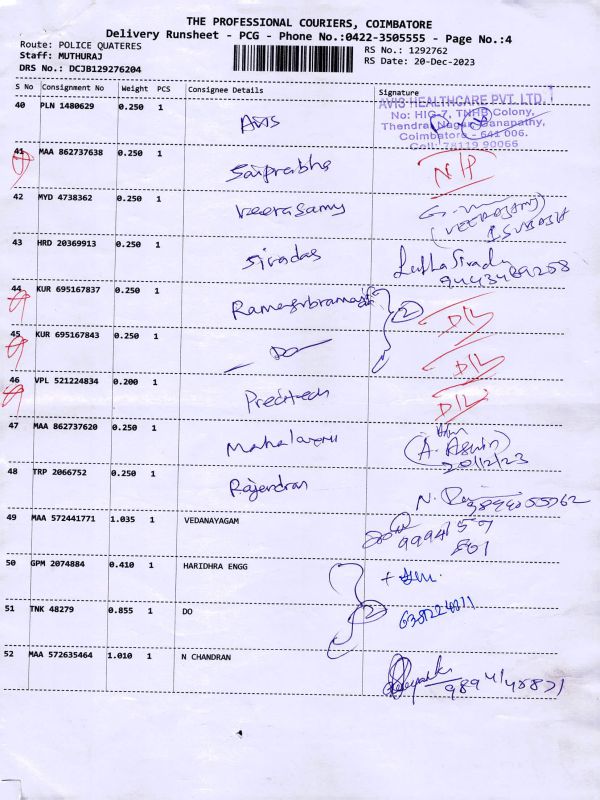 THE PROFESSIONAL COURIERS, COIMBATORE
Delivery Runsheet - PCG - Phone No.:0422-3505555 - Page No.:4
Route: POLICE QUATERES RS No.: 1292762
Staff: MUTHURAJ RS Date: 20-Dec-2023
DRS No.: DCJB129276204
S No Consignment No Weight PCS Consignee Details Signature
40 PLN 1480629 0.250 1 Avis
AVIS HEALTHCARE PVT. LTD.
No: HIG-7, TNHB Colony,
Thendral Nagar, Ganapathy,
Coimbatore - 641 006.
Cell: 78119 90066
41 MAA 862737638 0.250 1 Saiprabha N/P
42 MYD 4738362 0.250 1 Veerasamy
(VEERASAMY)
43 HRD 20369913 0.250 1 Sivadas
9443489208
44 KUR 695167837 0.250 1 2 D/L
45 KUR 695167843 0.250 1 DO D/L
46 VPL 521224834 0.200 1 D/L
47 MAA 862737620 0.250 1
(A. Aswin)
20/12/23
48 TRP 2066752 0.250 1 Rajendran
N.
49 MAA 572441771 1.035 1 VEDANAYAGAM
50 GPM 2074884 0.410 1 HARIDHRA ENGG
51 TNK 48279 0.855 1 DO 2
52 MAA 572635464 1.010 1 N CHANDRAN